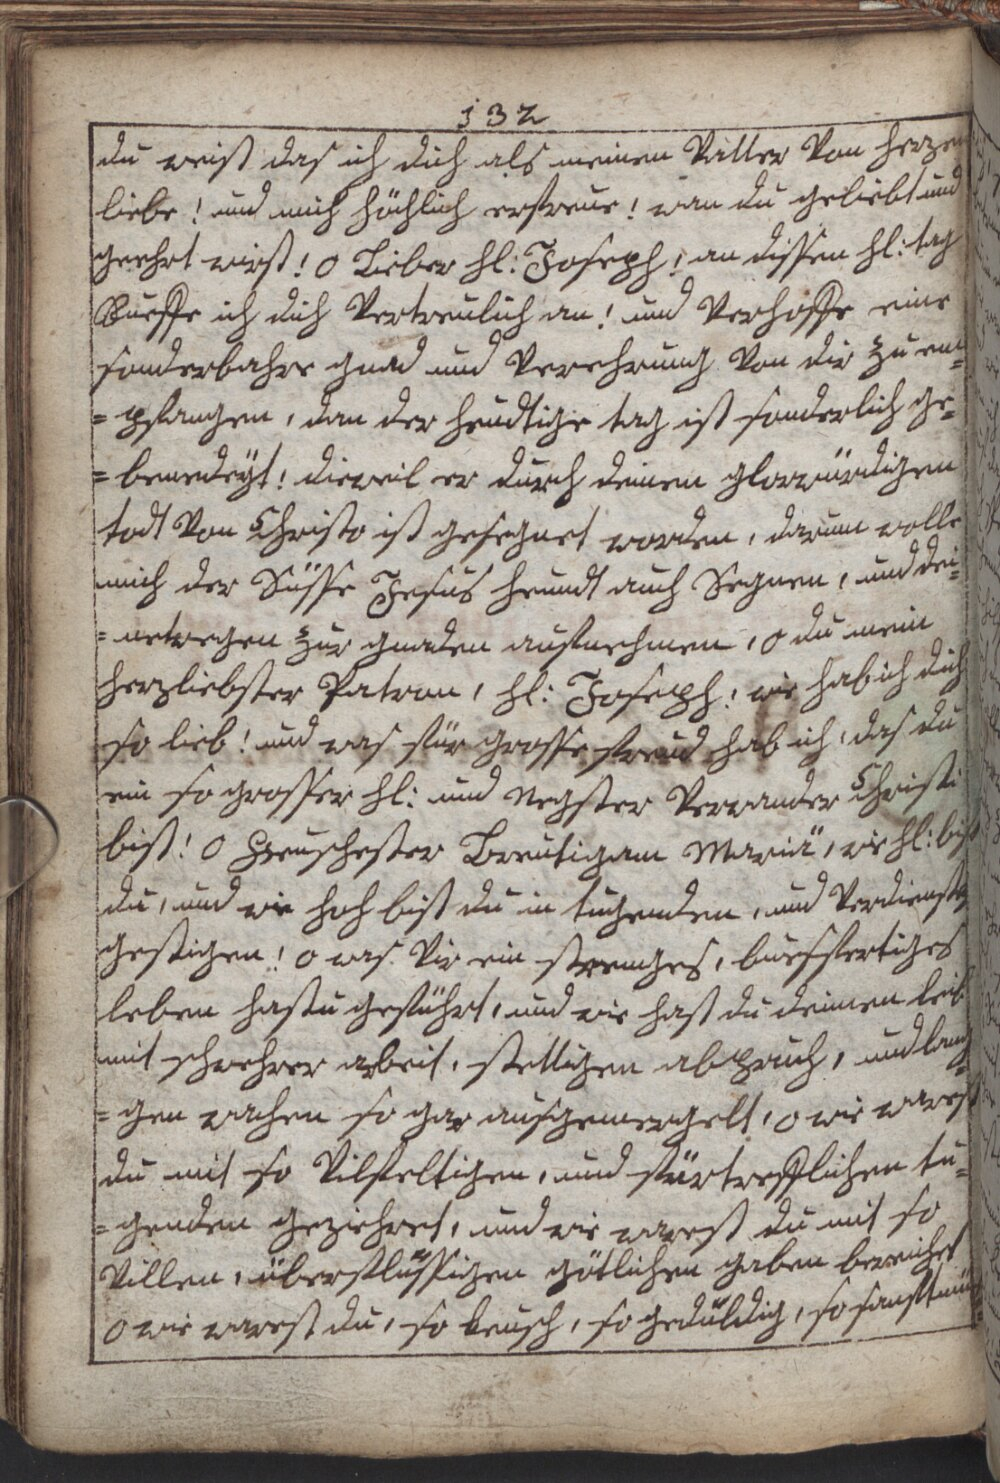 132
du weist das ich dich als meinen Vatter Von herzen
liebe! und mich höchlich erfreue! wan du geliebt und
geehrt wirst! O Lieber hl: Joseph! an dissen hl: tag
Rueffe ich dich Vertreulich an! und Verhoffe eine
sonderbahre gnad und Verehrung Von dir zu em=
=pfangen, dan der heudtige tag ist sonderlich ge=
=benedeÿt! dieweil er durch deinen glorwürdigen
todt Von Christo ist gesegnet worden, darum wolle
mich der Süsse Jesus heundt auch Segnen, und dei=
=netwegen zur gnaden aufnehmen, o du mein
herzliebster Patron, hl: Joseph! wie hab ich dich
so lieb! und was für grosse freud hab ich, das du
ein so grosser hl: und Negster Verwander Christi
bist! O Keuschester Breutigam Mariä, wie hl: bist
du, und wie hoch bist du in tugenden, und Verdienste
gestigen! o was Vir ein strenges, buesfertiges
leben hastu geführt, und wie hast du deinen leib
mit schwehrer arbeit, stettigen abpruch, und lan=
=gen wachen so gar ausgemergelt, o wie warest
du mit so Vilfeltigen, und fürtrefflichen tu=
=genden geziehret, und wie warest du mit so
Villen, überflüssigen götlichen gaben bereichet
O wie warest du, so keusch, so geduldig, so sanftmü=